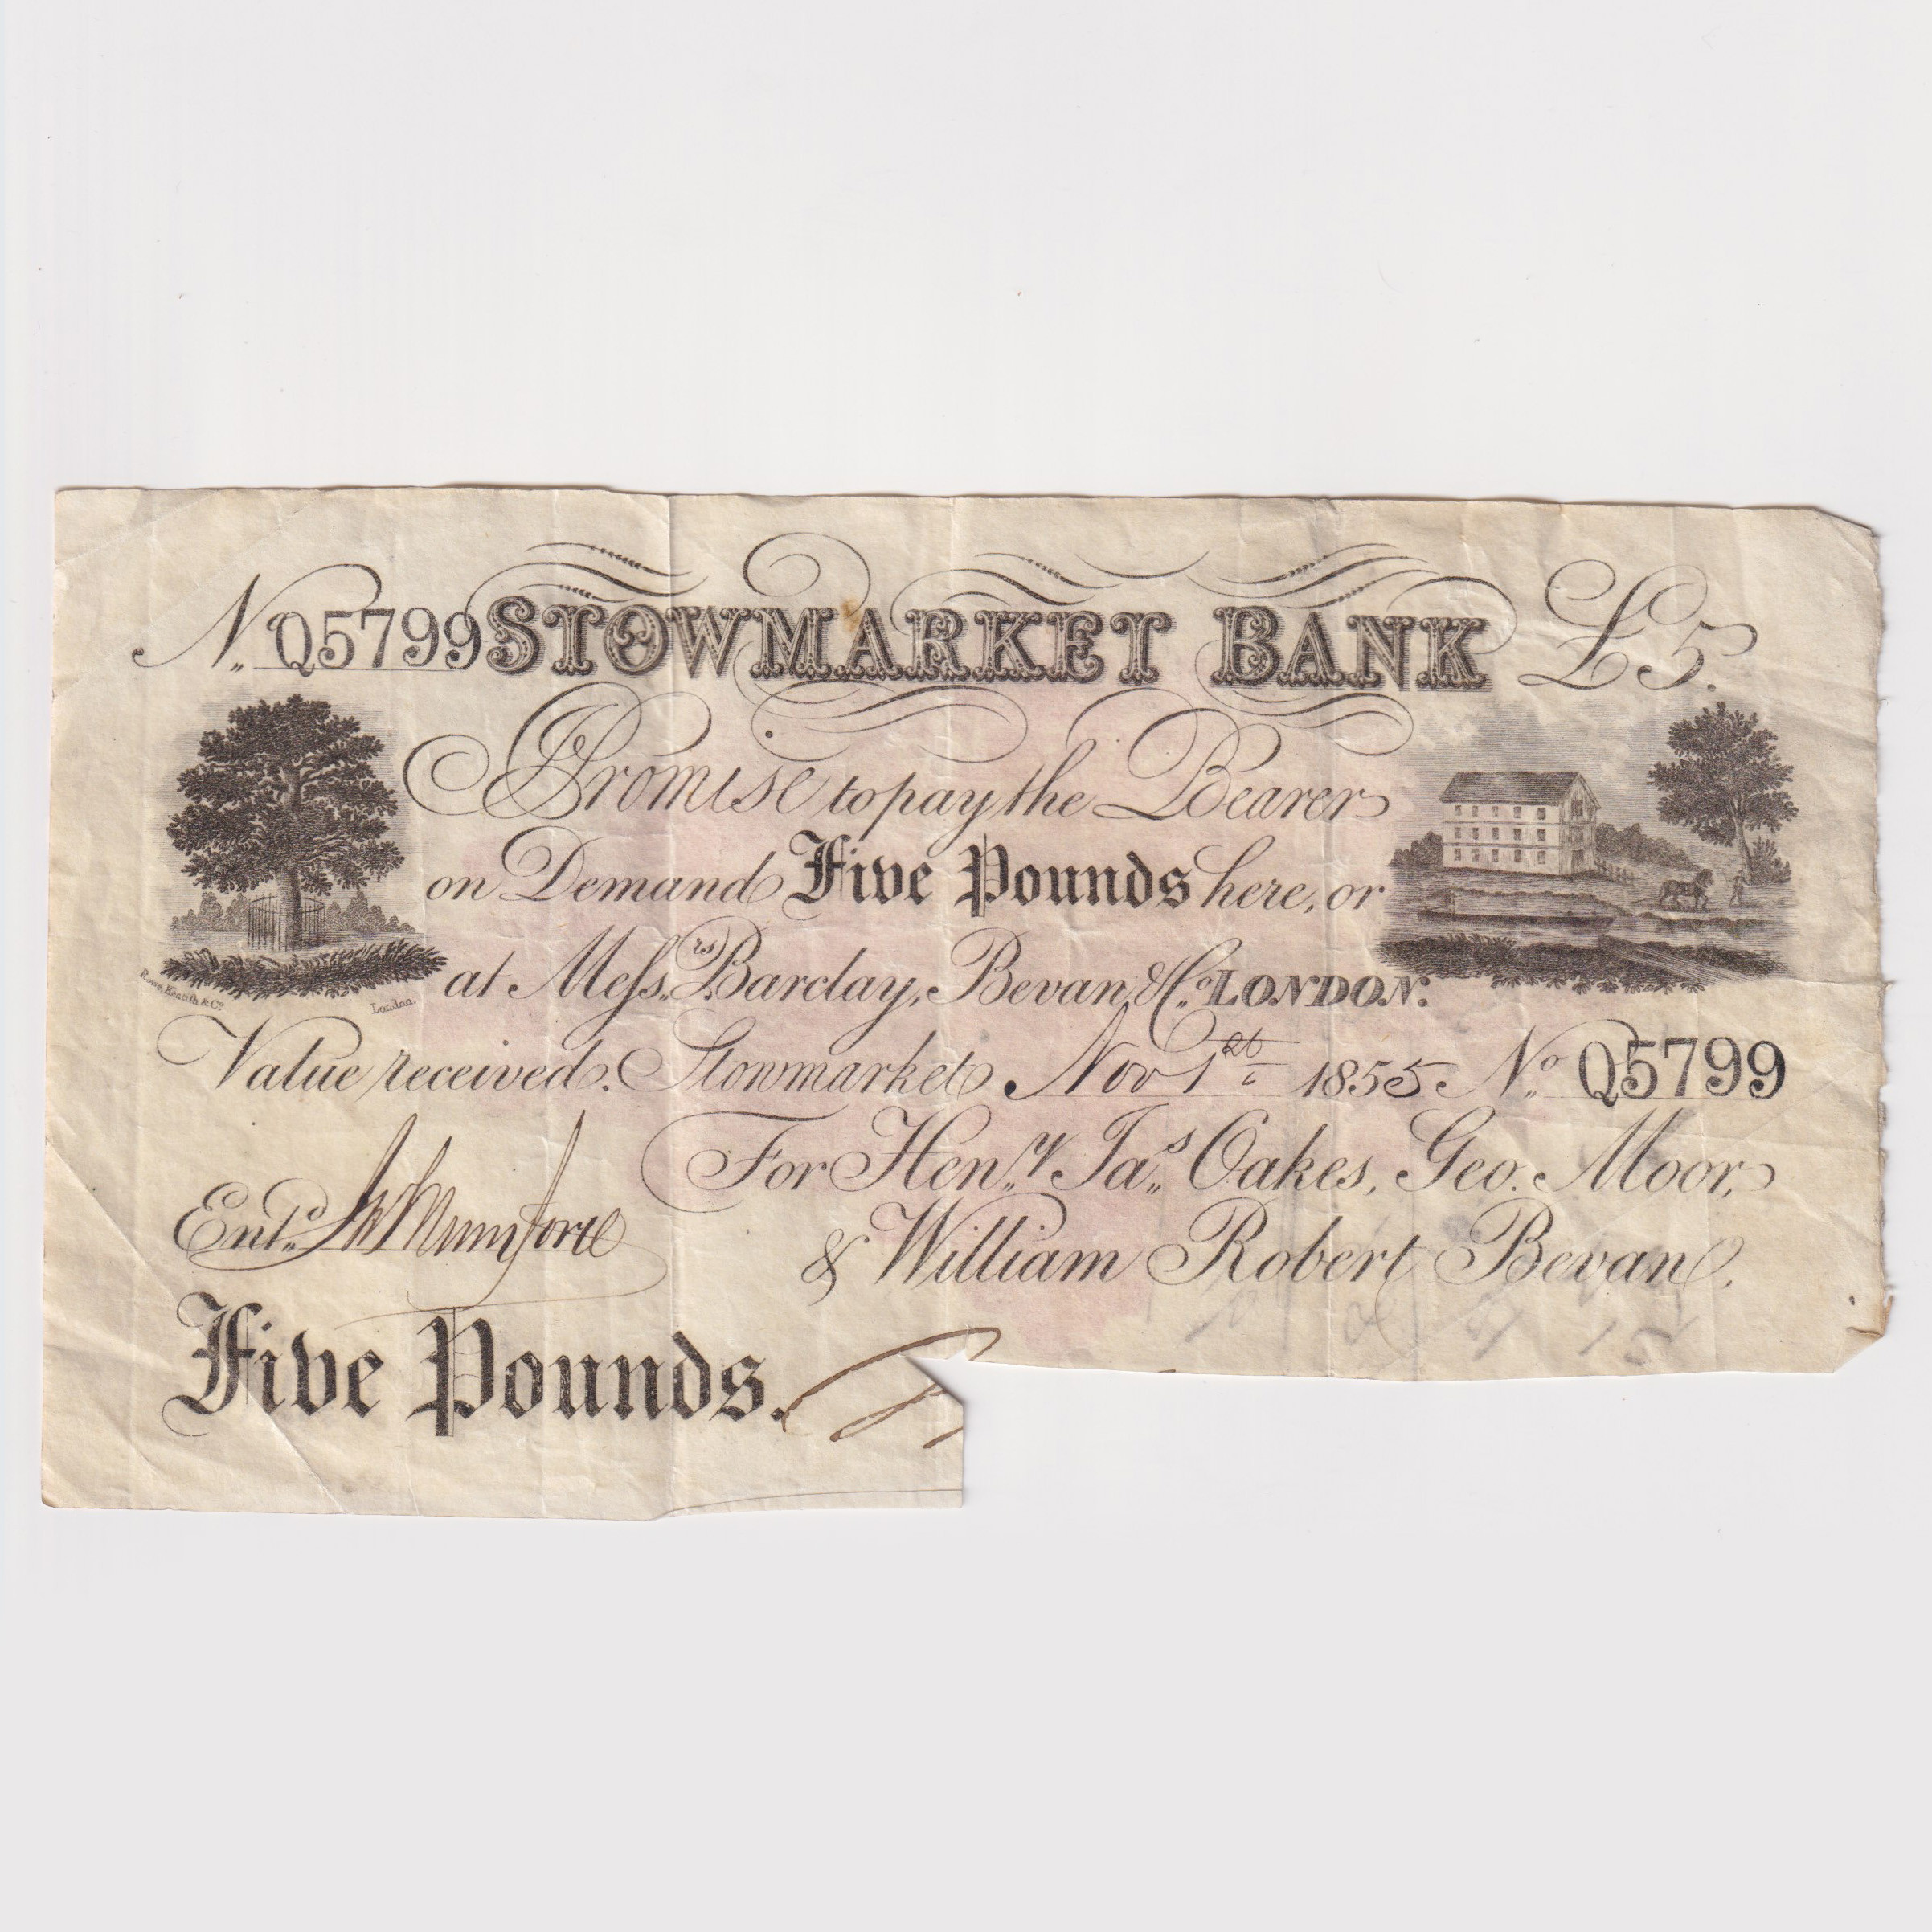 No. Q5799 STOWMARKET BANK £5.
I Promise to pay the Bearer
on Demand Five Pounds here, or
at Messrs. Barclay, Bevan & Co. LONDON.
Rowe, Kentish & Co. London.
Value received. Stowmarket Nov 1st 1855 No. Q5799
For Heny. Jas. Oakes, Geo. Moor,
& William Robert Bevan.
Entd. Mumford
Five Pounds.